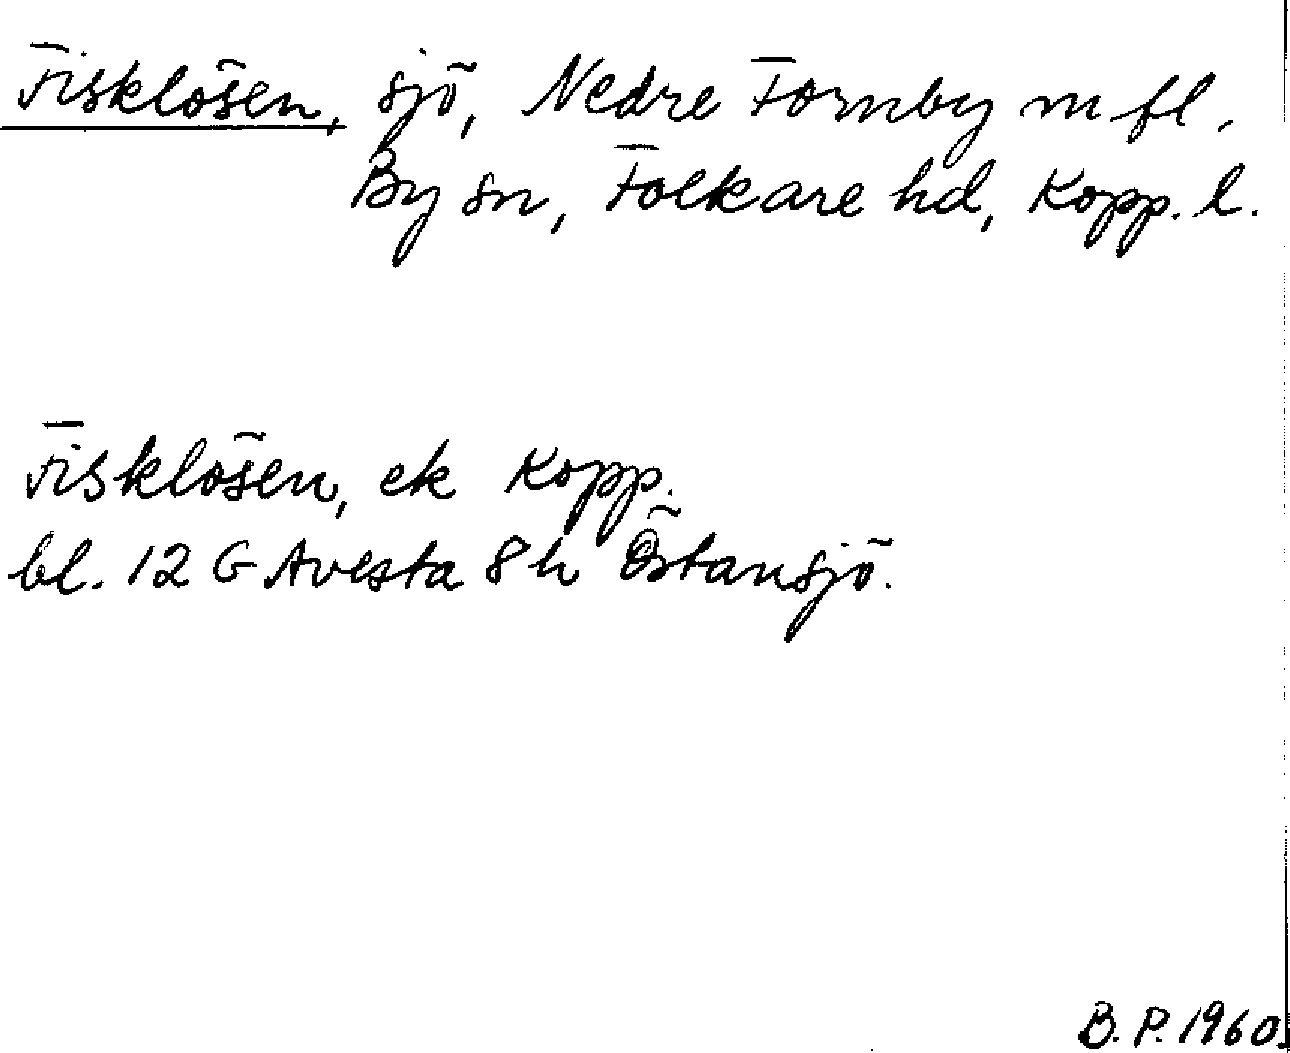 Fisklösen, sjö, Nedre Fornby m fl.
By sn, Folkare hd, Kopp. l.
Fisklösen, ek Kopp.
bl. 12 G Avesta 8 h Östansjö.
B. P. 1960